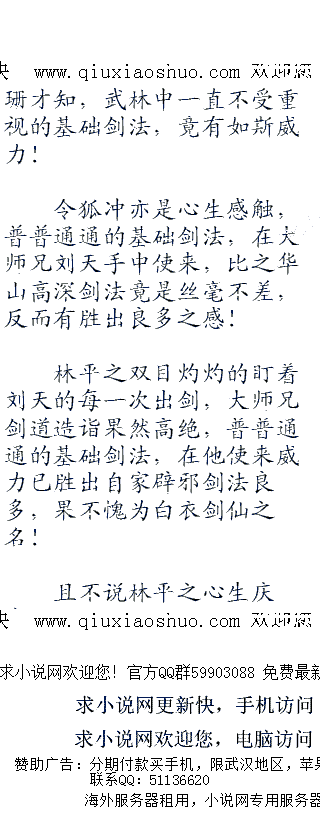 快 www.qiuxiaoshuo.com 欢迎您
珊才知，武林中一直不受重
视的基础剑法，竟有如斯威
力！
令狐冲亦是心生感触，
普普通通的基础剑法，在大
师兄刘天手中使来，比之华
山高深剑法竟是丝毫不差，
反而有胜出良多之感！
林平之双目灼灼的盯着
刘天的每一次出剑，大师兄
剑道造诣果然高绝，普普通
通的基础剑法，在他使来威
力已胜出自家辟邪剑法良
多，果不愧为白衣剑仙之
名！
且不说林平之心生庆
快 www.qiuxiaoshuo.com 欢迎您
求小说网欢迎您！官方QQ群59903088 免费最新
求小说网更新快，手机访问
求小说网欢迎您，电脑访问
赞助广告：分期付款买手机，限武汉地区，苹果
联系QQ：51136620
海外服务器租用，小说网专用服务器